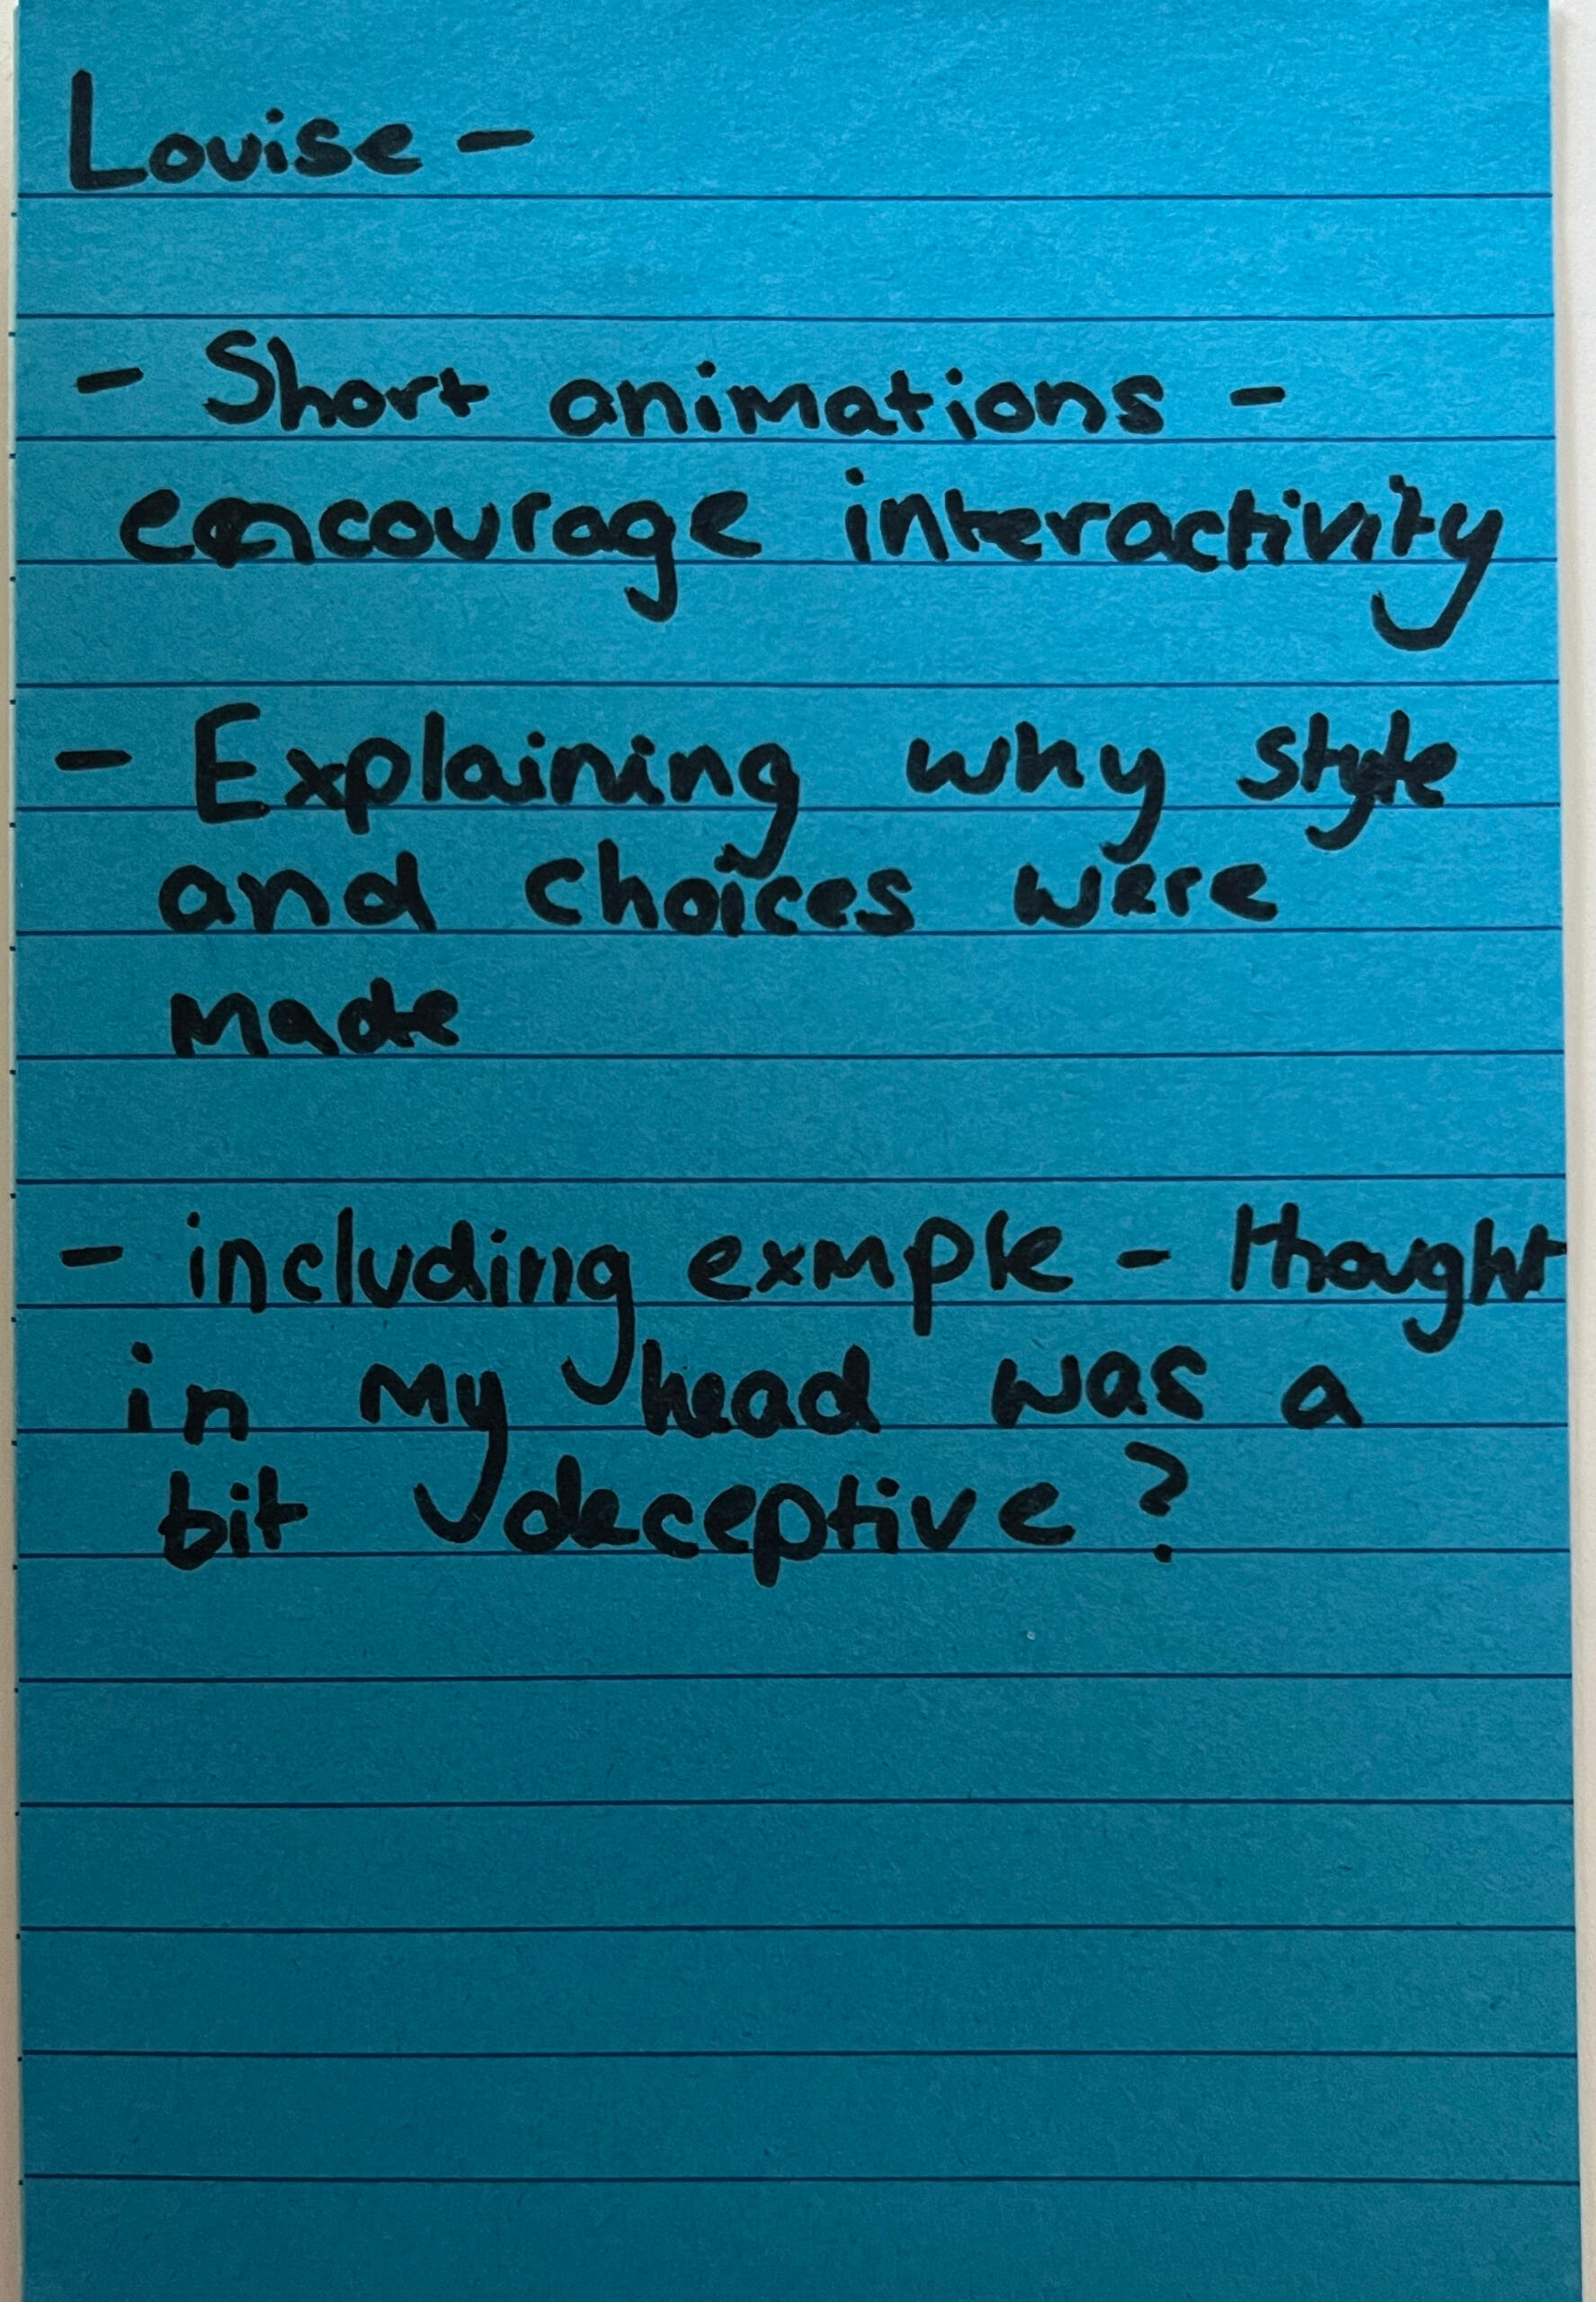 Louise -
- Short animations -
encourage interactivity
- Explaining why style
and choices were
made
- including exmple - thought
in my head was a
bit deceptive?